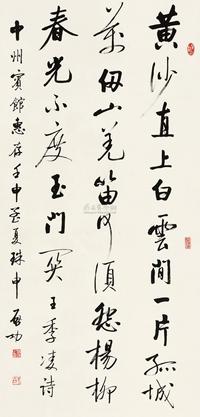 黄沙直上白雲間一片孤城
萬仞山羌笛何須愁楊柳
春光不度玉門関王季凌詩
十州賓館惠存壬申首夏珠申啟功